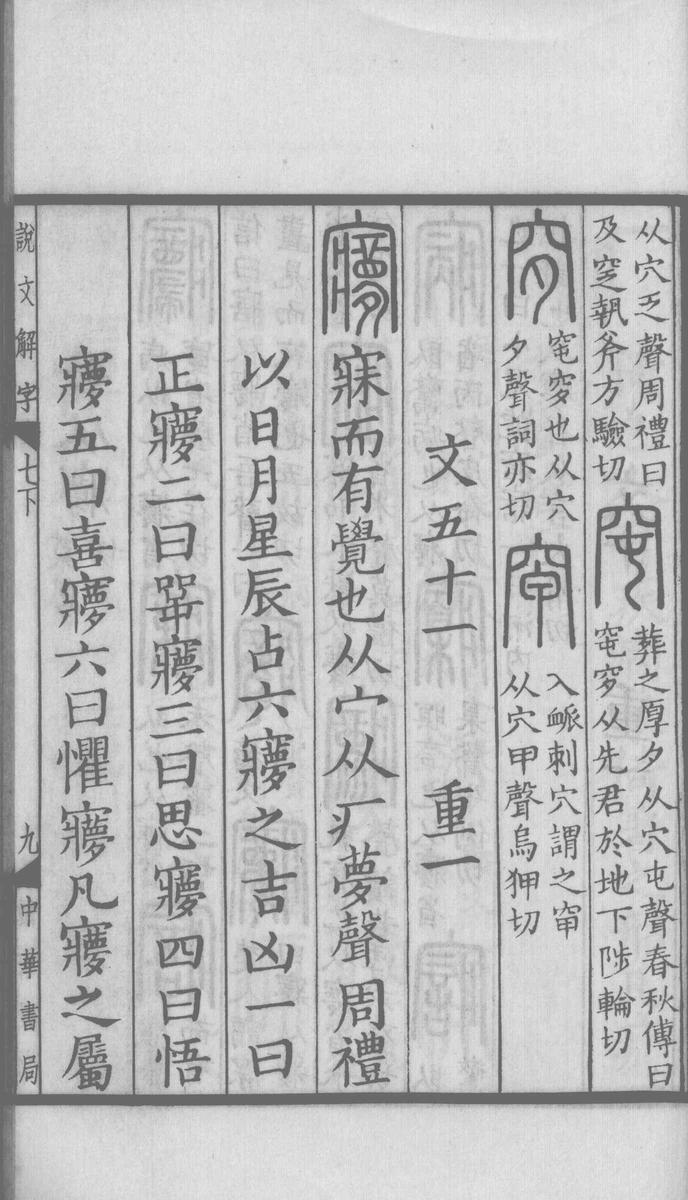 从穴乏聲周禮曰
及窆執斧方驗切
窀
葬之厚夕从穴屯聲春秋傳曰
窀穸从先君於地下陟輪切
穸
窀穸也从穴
夕聲詞亦切
𥥍
入衇刺穴謂之𥥍
从穴甲聲烏狎切
文五十一 重一
㝱 寐而有覺也从宀从疒夢聲周禮
以日月星辰占六㝱之吉凶一曰
正㝱二曰㖾㝱三曰思㝱四曰悟
㝱五曰喜㝱六曰懼㝱凡㝱之屬
說文解字 七下 九 中華書局